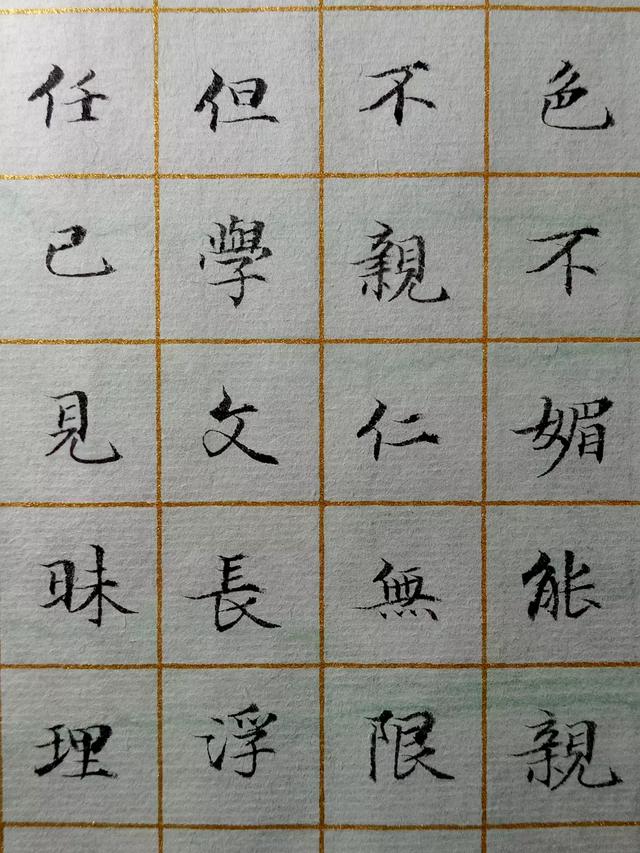 色不媚能親
不親仁無限
但學文長浮
任己見昧理